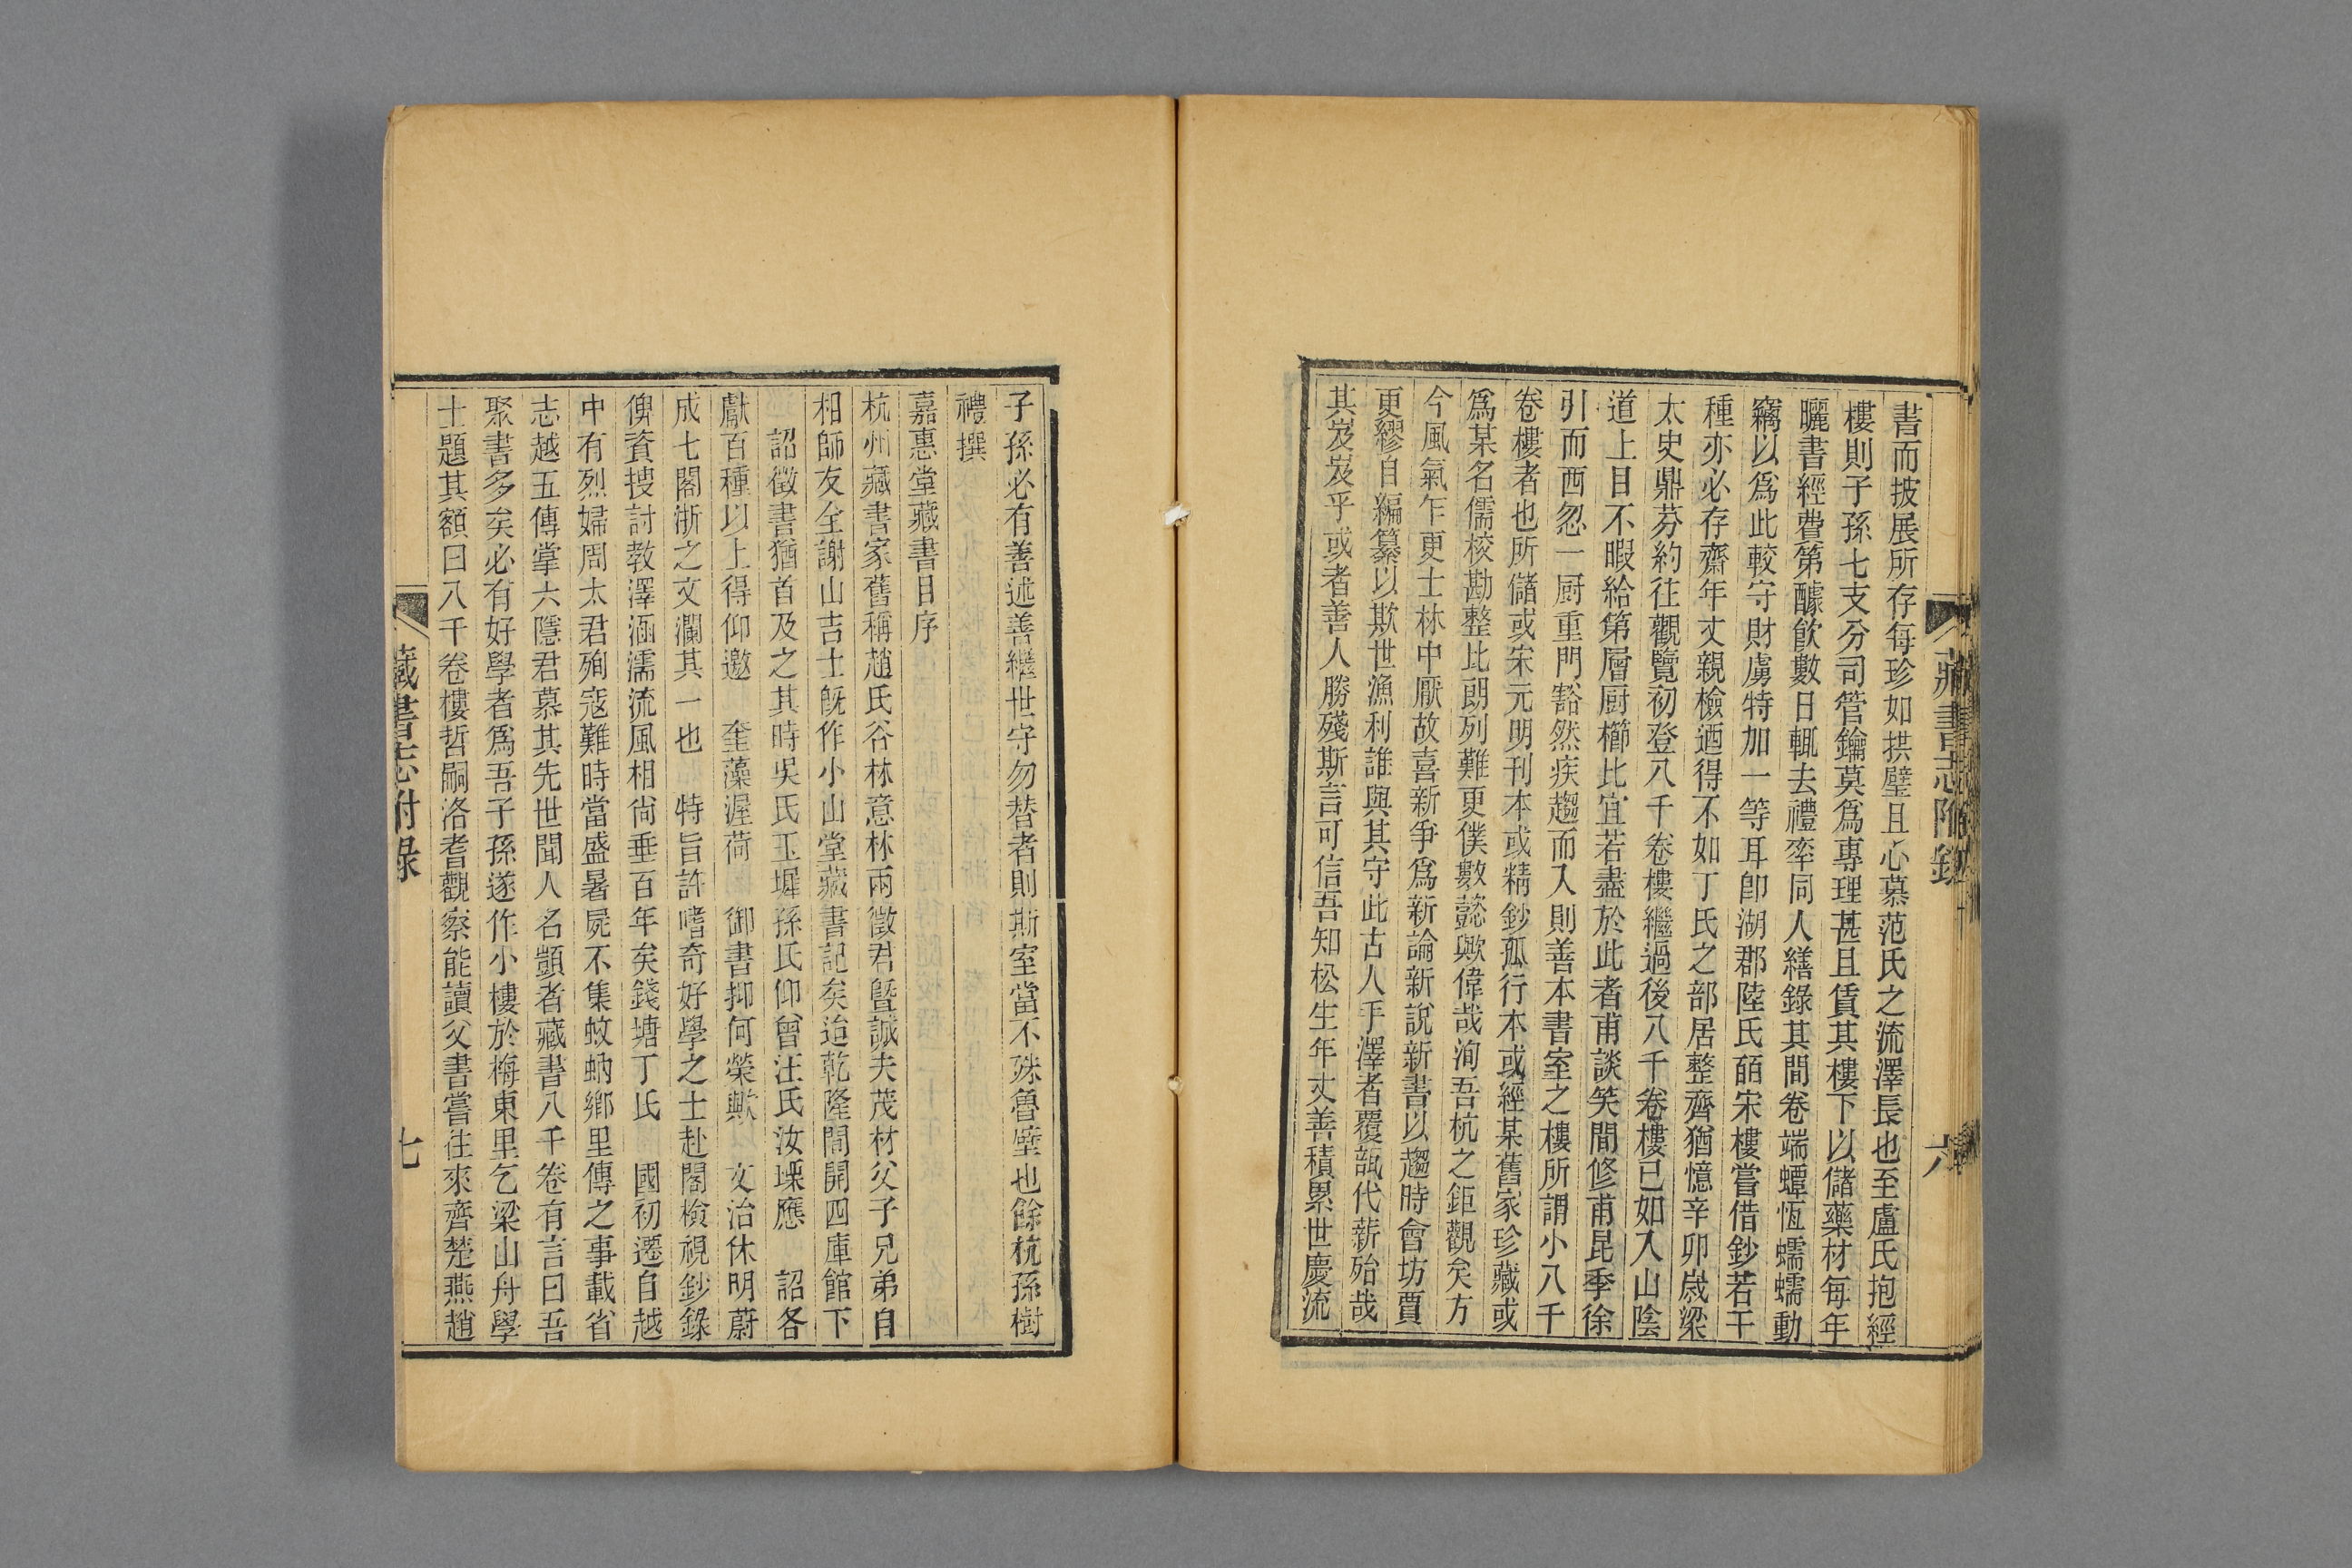 書而披展所存每珍如拱璧且心慕范氏之流澤長也至盧氏抱經
樓則子孫七支分司管鑰莫爲專理甚且賃其樓下以儲藥材每年
曬書經費第醵飮數日輒去禮率同人繕錄其間卷端蟫恆蠕蠕動
竊以爲此較守財虜特加一等耳卽湖郡陸氏皕宋樓嘗借鈔若干
種亦必存齋年丈親檢迺得不如丁氏之部居整齊猶憶辛卯歲梁
太史鼎芬約往觀覽初登八千卷樓繼過後八千卷樓已如入山陰
道上目不暇給第層厨櫛比宜若盡於此者甫談笑間修甫昆季徐
引而西忽一厨重門豁然疾趨而入則善本書室之樓所謂小八千
卷樓者也所儲或宋元明刊本或精鈔孤行本或經某舊家珍藏或
爲某名儒校勘整比朗列難更僕數懿歟偉哉洵吾杭之鉅觀矣方
今風氣乍更士林中厭故喜新爭爲新論新說新書以趨時會坊賈
更繆自編纂以欺世漁利誰與其守此古人手澤者覆瓿代薪殆哉
其岌岌乎或者善人勝殘斯言可信吾知松生年丈善積累世慶流
藏書志附錄
六
子孫必有善述善繼世守勿替者則斯室當不殊魯壁也餘杭孫樹
禮撰
嘉惠堂藏書目序
杭州藏書家舊稱趙氏谷林意林兩徵君曁誠夫茂材父子兄弟自
相師友全謝山吉士旣作小山堂藏書記矣迨乾隆間開四庫館下
詔徵書猶首及之其時吳氏玉墀孫氏仰曾汪氏汝瑮應　詔各
獻百種以上得仰邀　奎藻渥荷　御書抑何榮歟　文治休明蔚
成七閣浙之文瀾其一也　特旨許嗜奇好學之士赴閣檢視鈔錄
俾資搜討敎澤涵濡流風相尙垂百年矣錢塘丁氏　國初遷自越
中有烈婦周太君殉寇難時當盛暑屍不集蚊蚋鄉里傳之事載省
志越五傳掌六隱君慕其先世聞人名顗者藏書八千卷有言曰吾
聚書多矣必有好學者爲吾子孫遂作小樓於梅東里乞梁山舟學
士題其額曰八千卷樓哲嗣洛耆觀察能讀父書嘗往來齊楚燕趙
藏書志附錄
七